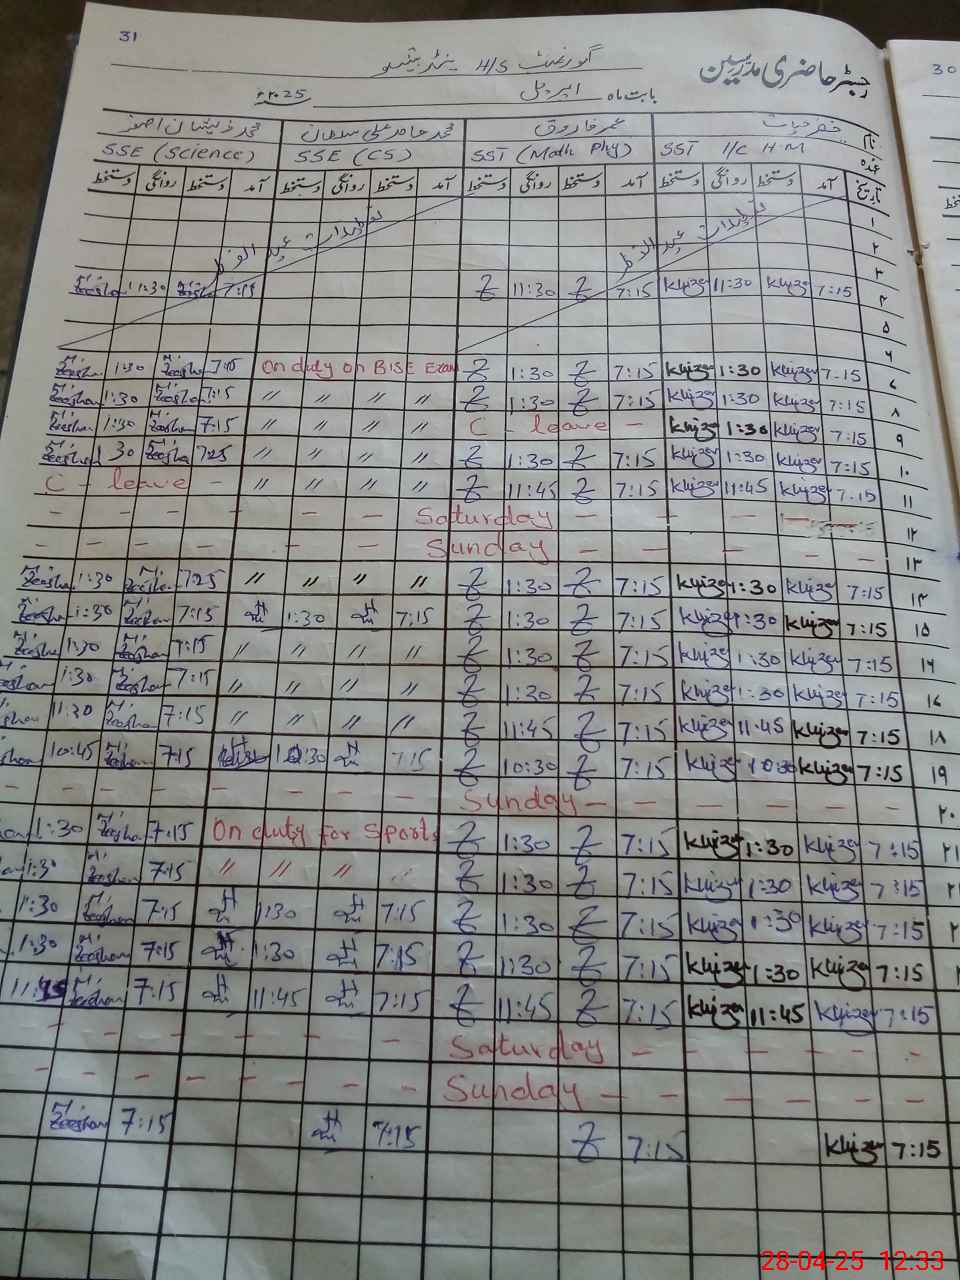 31
رجسٹر حاضری مدرسین گورنمنٹ H/S
بابت ماہ اپریل 2025ء
نام خضر حیات عمر فاروق محمد حامد علی سلمان محمد ذیشان اصغر
عہدہ SST I/C H.M SST (Math Phy) SSE (CS) SSE (Science)
تاریخ آمد دستخط روانگی دستخط آمد دستخط روانگی دستخط آمد دستخط روانگی دستخط آمد دستخط روانگی دستخط
۱
۲ تعطیلات عید الفطر تعطیلات عید الفطر
۳
۴ 7:15 Khizer 11:30 Khizer 7:15 Z 11:30 Z 7:15 Zeeshan 11:30 Zeeshan
۵
۶
۷ 7:15 Khizer 1:30 Khizer 7:15 Z 1:30 Z On duty on BISE Exam 7:15 M. Zeeshan 1:30 M. Zeeshan
۸ 7:15 Khizer 1:30 Khizer 7:15 Z 1:30 Z " " " " 7:15 M. Zeeshan 1:30 M. Zeeshan
۹ 7:15 Khizer 1:30 Khizer C - leave - " " " " 7:15 M. Zeeshan 1:30 M. Zeeshan
۱۰ 7:15 Khizer 1:30 Khizer 7:15 Z 1:30 Z " " " " 7:25 M. Zeeshan 1 30 M. Zeeshan
۱۱ 7:15 Khizer 11:45 Khizer 7:15 Z 11:45 Z " " " " C - leave -
۱۲ - - - - Saturday - - - - - -
۱۳ - - - - Sunday - - - - - -
۱۴ 7:15 Khizer 1:30 Khizer 7:15 Z 1:30 Z " " " " 7:25 M. Zeeshan 1:30 M. Zeeshan
۱۵ 7:15 Khizer 1:30 Khizer 7:15 Z 1:30 Z 7:15 1:30 7:15 M. Zeeshan 1:30 M. Zeeshan
۱۶ 7:15 Khizer 1:30 Khizer 7:15 Z 1:30 Z " " " " 7:15 M. Zeeshan 1:30 M. Zeeshan
۱۷ 7:15 Khizer 1:30 Khizer 7:15 Z 1:30 Z " " " " 7:15 M. Zeeshan 1:30 Zeeshan
۱۸ 7:15 Khizer 11:45 Khizer 7:15 Z 11:45 Z " " " " 7:15 M. Zeeshan 11:30
۱۹ 7:15 Khizer 10:30 Khizer 7:15 Z 10:30 Z 7:15 10:30 7:15 M. Zeeshan 10:45
۲۰ - - - - Sunday - - - - - -
۲۱ 7:15 Khizer 1:30 Khizer 7:15 Z 1:30 Z On duty for Sports 7:15 M. Zeeshan 1:30
7:15 Khizer 1:30 Khizer 7:15 Z 1:30 Z " " " 7:15 M. Zeeshan 1:30
7:15 Khizer 1:30 Khizer 7:15 Z 1:30 Z 7:15 1:30 7:15 M. Zeeshan 1:30
7:15 Khizer 1:30 Khizer 7:15 Z 1:30 Z 7:15 1:30 7:15 M. Zeeshan 1:30
7:15 Khizer 11:45 Khizer 7:15 Z 11:45 Z 7:15 11:45 7:15 M. Zeeshan 11:45
- - - - Saturday - - - - -
- - - - Sunday - - - - - -
7:15 Khizer 7:15 Z 7:15 7:15 M. Zeeshan
30
28-04-25 12:33